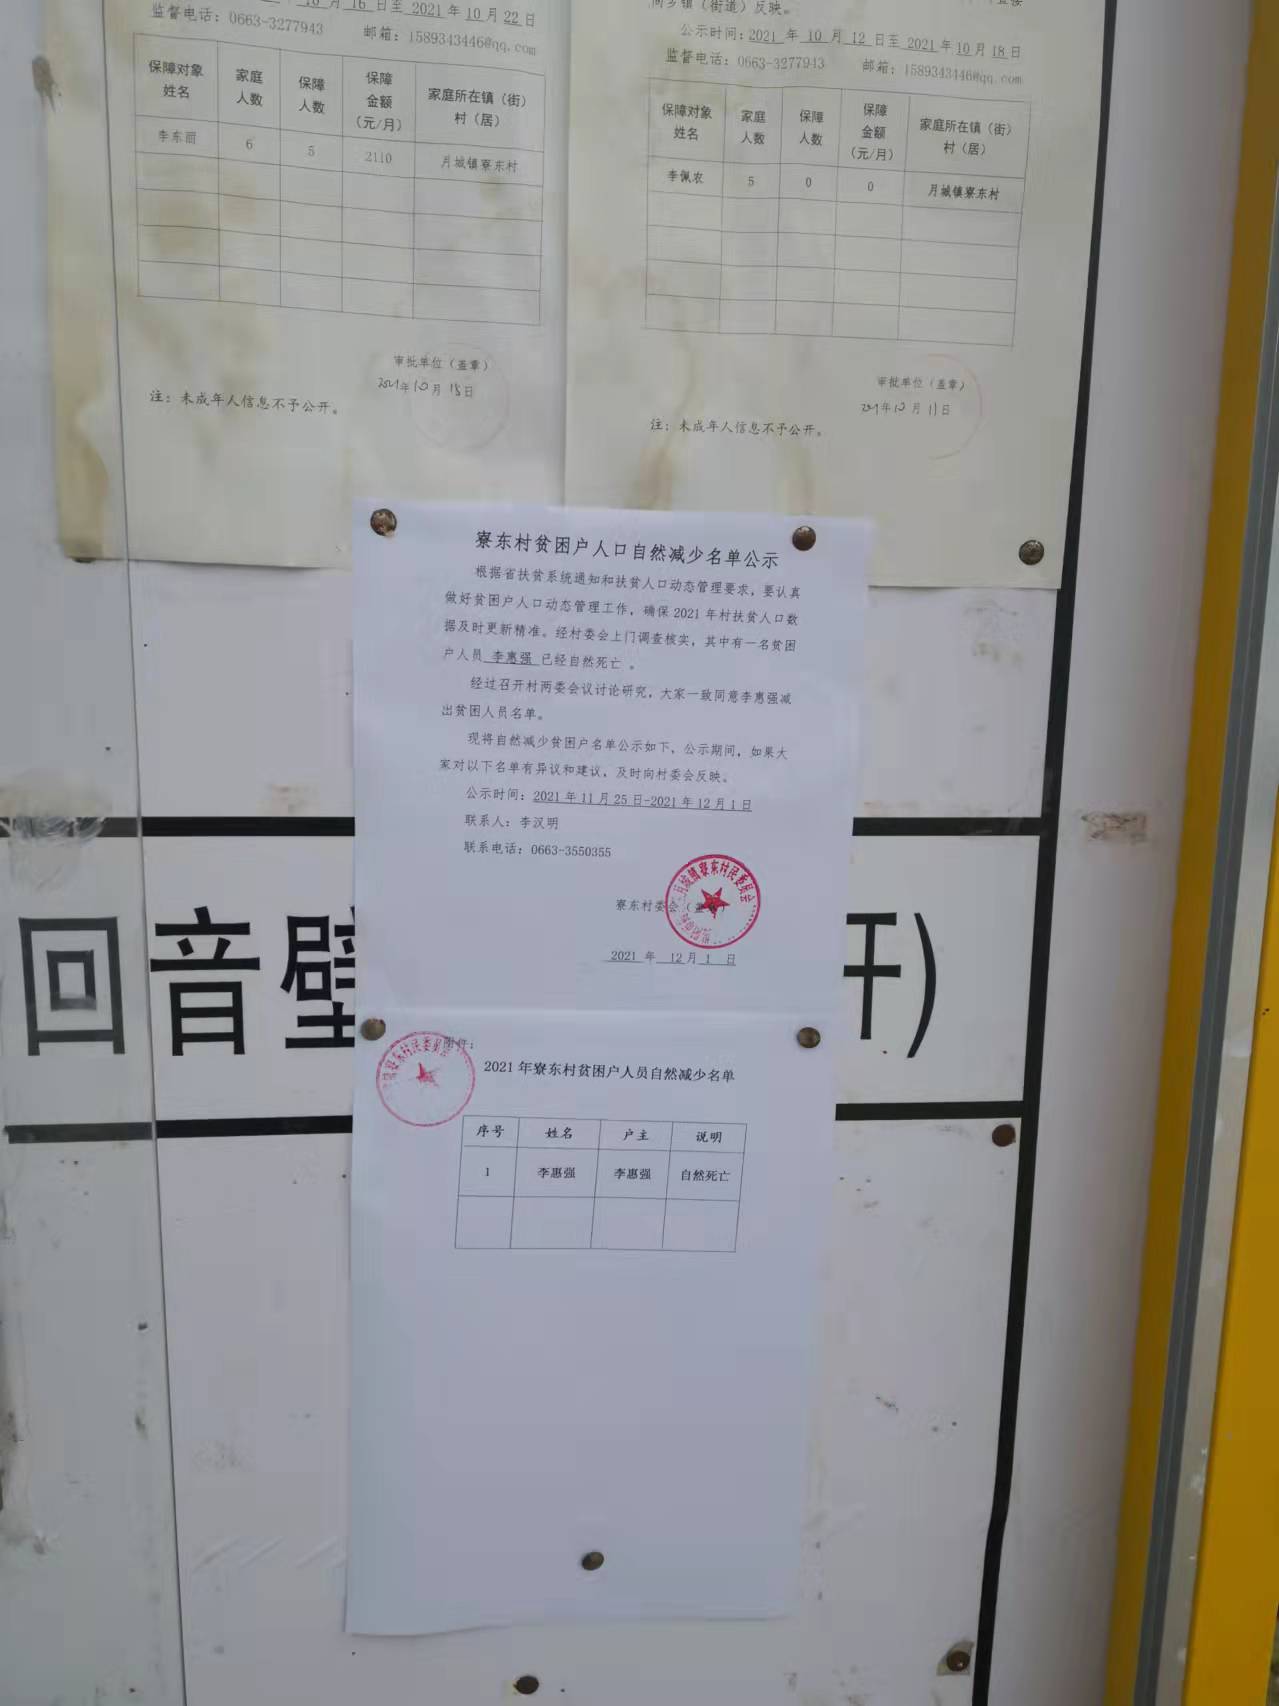 10 月 16 日至 2021 年 10 月 22 日
监督电话：0663-3277943 邮箱：1589343446@qq.com
保障对象姓名 家庭人数 保障人数 保障金额（元/月） 家庭所在镇（街）村（居）
李东丽 6 5 2110 月城镇寮东村
审批单位（盖章）
2021年10月15日
注：未成年人信息不予公开。
向乡镇（街道）反映。
公示时间：2021 年 10 月 12 日至 2021 年 10 月 18 日
监督电话：0663-3277943 邮箱：1589343446@qq.com
保障对象姓名 家庭人数 保障人数 保障金额（元/月） 家庭所在镇（街）村（居）
李佩农 5 0 0 月城镇寮东村
审批单位（盖章）
2021年10月11日
注：未成年人信息不予公开。
寮东村贫困户人口自然减少名单公示
根据省扶贫系统通知和扶贫人口动态管理要求，要认真
做好贫困户人口动态管理工作，确保 2021 年村扶贫人口数
据及时更新精准。经村委会上门调查核实，其中有一名贫困
户人员 李惠强 已经自然死亡 。
经过召开村两委会议讨论研究，大家一致同意李惠强减
出贫困人员名单。
现将自然减少贫困户名单公示如下，公示期间，如果大
家对以下名单有异议和建议，及时向村委会反映。
公示时间：2021 年 11 月 25 日-2021 年 12 月 1 日
联系人：李汉明
联系电话：0663-3550355
寮东村委会（盖章）
月城镇寮东村民委员会
2021 年 12 月 1 日
回音壁 开)
附件：
寮东村民委员会
2021 年寮东村贫困户人员自然减少名单
序号 姓名 户主 说明
1 李惠强 李惠强 自然死亡